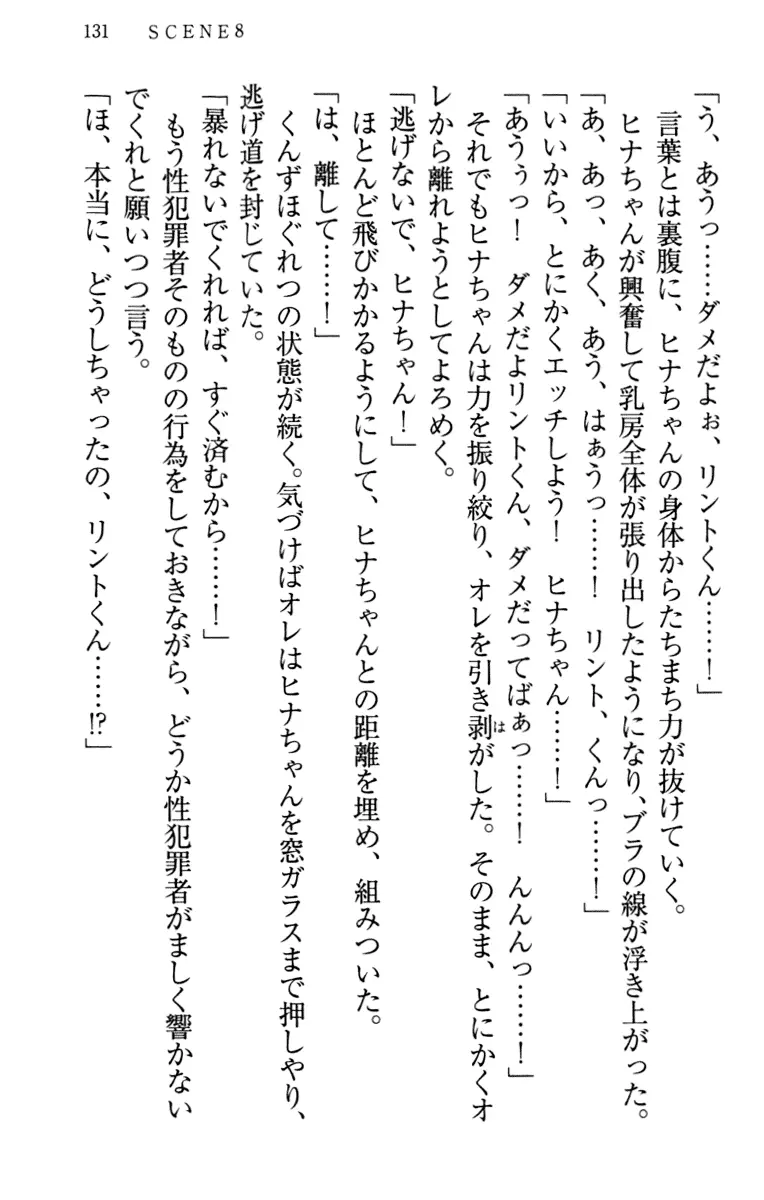 131 SCENE8
「う、あうっ……ダメだよぉ、リントくん……！」
言葉とは裏腹に、ヒナちゃんの身体からたちまち力が抜けていく。
ヒナちゃんが興奮して乳房全体が張り出したようになり、ブラの線が浮き上がった。
「あ、あっ、あく、あう、はぁうっ……！　リント、くんっ……！」
「いいから、とにかくエッチしよう！　ヒナちゃん……！」
「あうぅっ！　ダメだよリントくん、ダメだってばぁっ……！　んんんっ……！」
それでもヒナちゃんは力を振り絞り、オレを引き剥がした。そのまま、とにかくオ
レから離れようとしてよろめく。
「逃げないで、ヒナちゃん！」
ほとんど飛びかかるようにして、ヒナちゃんとの距離を埋め、組みついた。
「は、離して……！」
くんずほぐれつの状態が続く。気づけばオレはヒナちゃんを窓ガラスまで押しやり、
逃げ道を封じていた。
「暴れないでくれれば、すぐ済むから……！」
もう性犯罪者そのものの行為をしておきながら、どうか性犯罪者がましく響かない
でくれと願いつつ言う。
「ほ、本当に、どうしちゃったの、リントくん……!?」
は